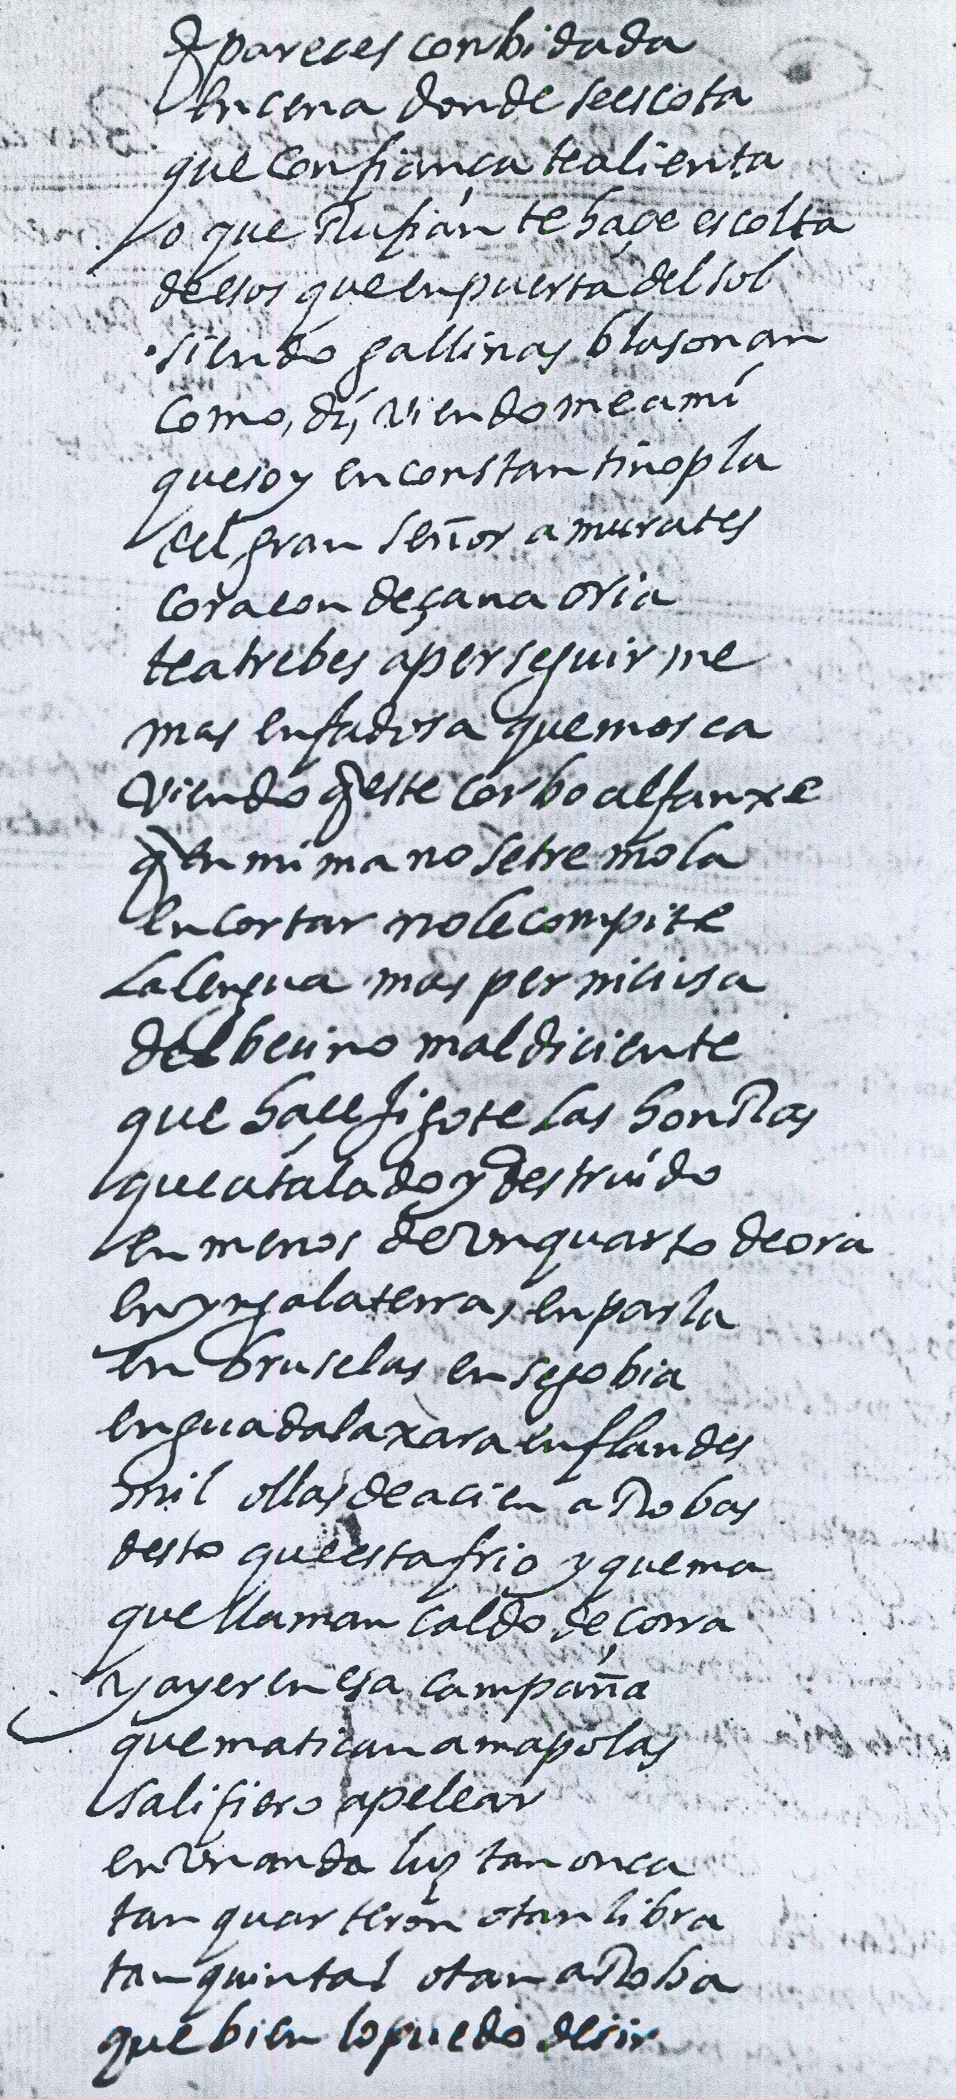 q pareces conbidada
en cena donde se escota
que confiança te alienta
o que Rufián te haçe escolta
de esos que en puerta del sol
siendo gallinas blasonan
como, di, viendome a mí
que soy en constantinopla
del gran señor amurates
coraçon de çanaoria
te atrebes a perseguirme
mas enfadosa que mosca
viendo q este corbo alfanxe
q en mi mano se tremola
en cortar no le compite
la lengua mas perniciosa
del becino maldiciente
que hace jigote las honRas
que a talado y destruído
en menos de un quarto de ora
en yngalaterra, en parla
en bruselas en segobia
en guadalaxara en flandes
mil ollas de a cien aRobas
desto que esta frio y quema
que llaman caldo de çorra
y ayer en esa campaña
que matiçan amapolas
sali fiero a pelear
en un andaluz tan onça
tan quarterón o tan libra
tan quintal o tan aRoba
que bien lo puedo decir